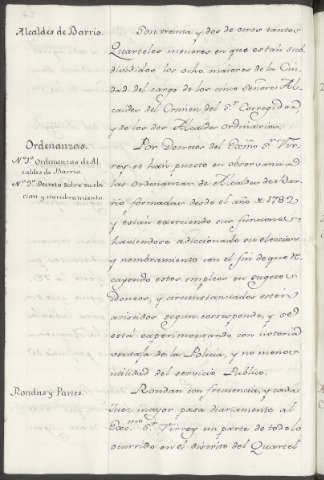 Alcaldes de Barrio.
Son treinta y dos de otros tantos
Quarteles menores en que están sub
divididos los ocho maiores de la Ciu
dad del cargo de los cinco Señores Al
caldes del Crimen del Sr. Corregidor,
y de los dos Alcaldes ordinarios.
Ordenanzas.
Nº 1º Ordenanzas de Al
caldes de Barrio.
Nº 2º Decreto sobre su elec
cion y nombramiento
Por Decretos del Exmo Sr. Vir
rey se han puesto en observancia
las ordenanzas de Alcaldes de Bar
rio formadas desde el año de 1782
y están exerciendo sus funciones
haviendose adiccionado su eleccion
y nombramiento con el fin de que re
cayendo estos empleos en sugetos
Idoneos, y circunstanciados estén
servidos segun corresponde, y se
está experimentando con notoria
ventaja de la Policia, y no menos
utilidad del servicio Publico.
Rondas y Partes.
Rondan con frecuencia, y cada
Juez mayor pasa diariamente al
Exc.mo Sr. Virrey un parte de todo lo
ocurrido en el distrito del Quartel